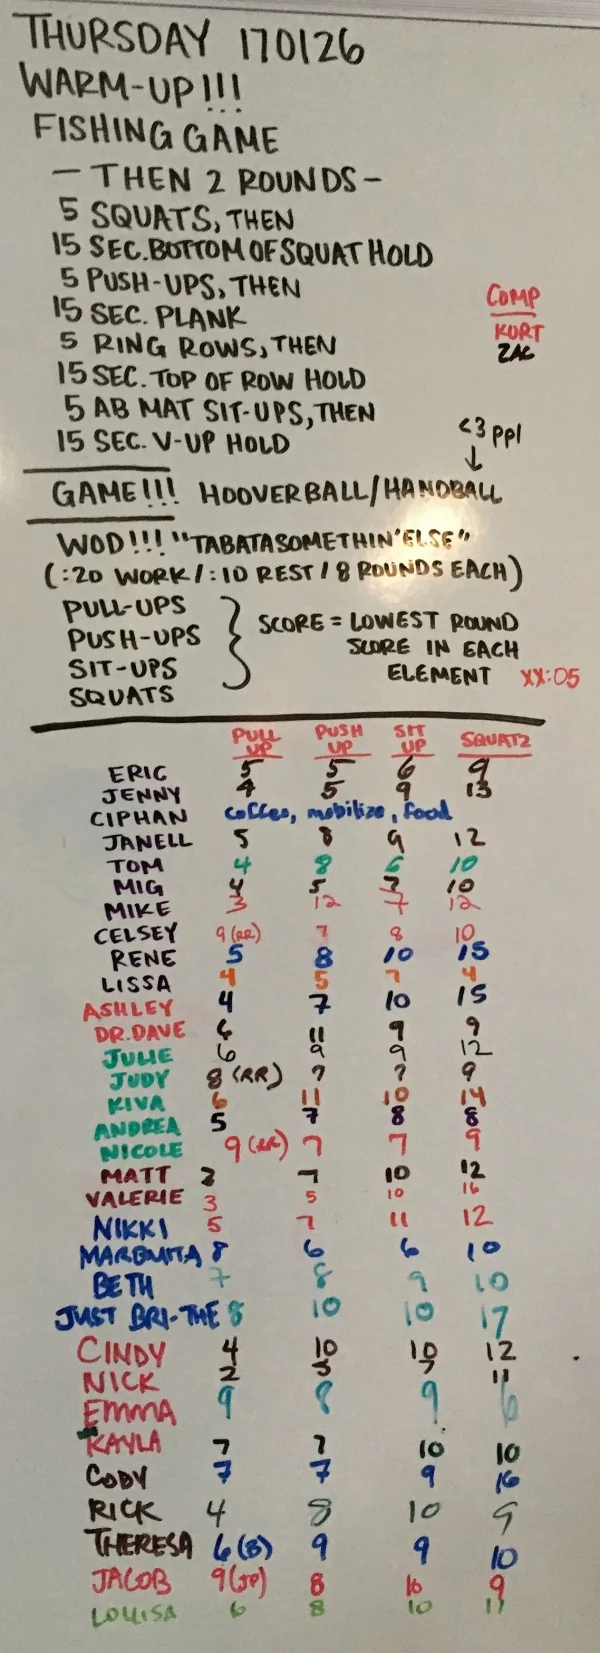 THURSDAY 170126
WARM-UP!!!
FISHING GAME
- THEN 2 ROUNDS -
5 SQUATS, THEN
15 SEC. BOTTOM OF SQUAT HOLD
5 PUSH-UPS, THEN
15 SEC. PLANK
5 RING ROWS, THEN
15 SEC. TOP OF ROW HOLD
5 AB MAT SIT-UPS, THEN
15 SEC. V-UP HOLD
COMP
KURT
ZAC
<3 ppl
GAME!!! HOOVERBALL/HANDBALL
WOD!!! "TABATA SOMETHIN' ELSE"
(:20 WORK/:10 REST/8 ROUNDS EACH)
PULL-UPS
PUSH-UPS
SIT-UPS
SQUATS
SCORE = LOWEST ROUND
SCORE IN EACH
ELEMENT XX:05
PULL UP PUSH UP SIT UP SQUATZ
ERIC 5 5 6 9
JENNY 4 5 9 13
CIPHAN coffee, mobilize, food
JANELL 5 8 9 12
TOM 4 8 6 10
MIG 4 5 7 10
MIKE 3 12 7 12
CELSEY 9 (RR) 7 8 10
RENE 5 8 10 15
LISSA 4 5 7 4
ASHLEY 4 7 10 15
DR. DAVE 6 11 9 9
JULIE 6 9 9 12
JUDY 8 (RR) 7 7 9
KIVA 6 11 10 14
ANDREA 5 7 8 8
NICOLE 9 (RR) 7 7 9
MATT 7 10 12
VALERIE 3 5 10 16
NIKKI 5 7 11 12
8 6 6 10
BETH 7 8 9 10
JUST BRI-THE 8 10 10 17
CINDY 4 10 10 12
NICK 2 7 11
EMMA 9 8 9 6
KAYLA 7 7 10 10
CODY 7 7 9 16
RICK 4 8 10 9
THERESA 6 (B) 9 9 10
JACOB 9 8 10 9
LOUISA 6 8 10 11